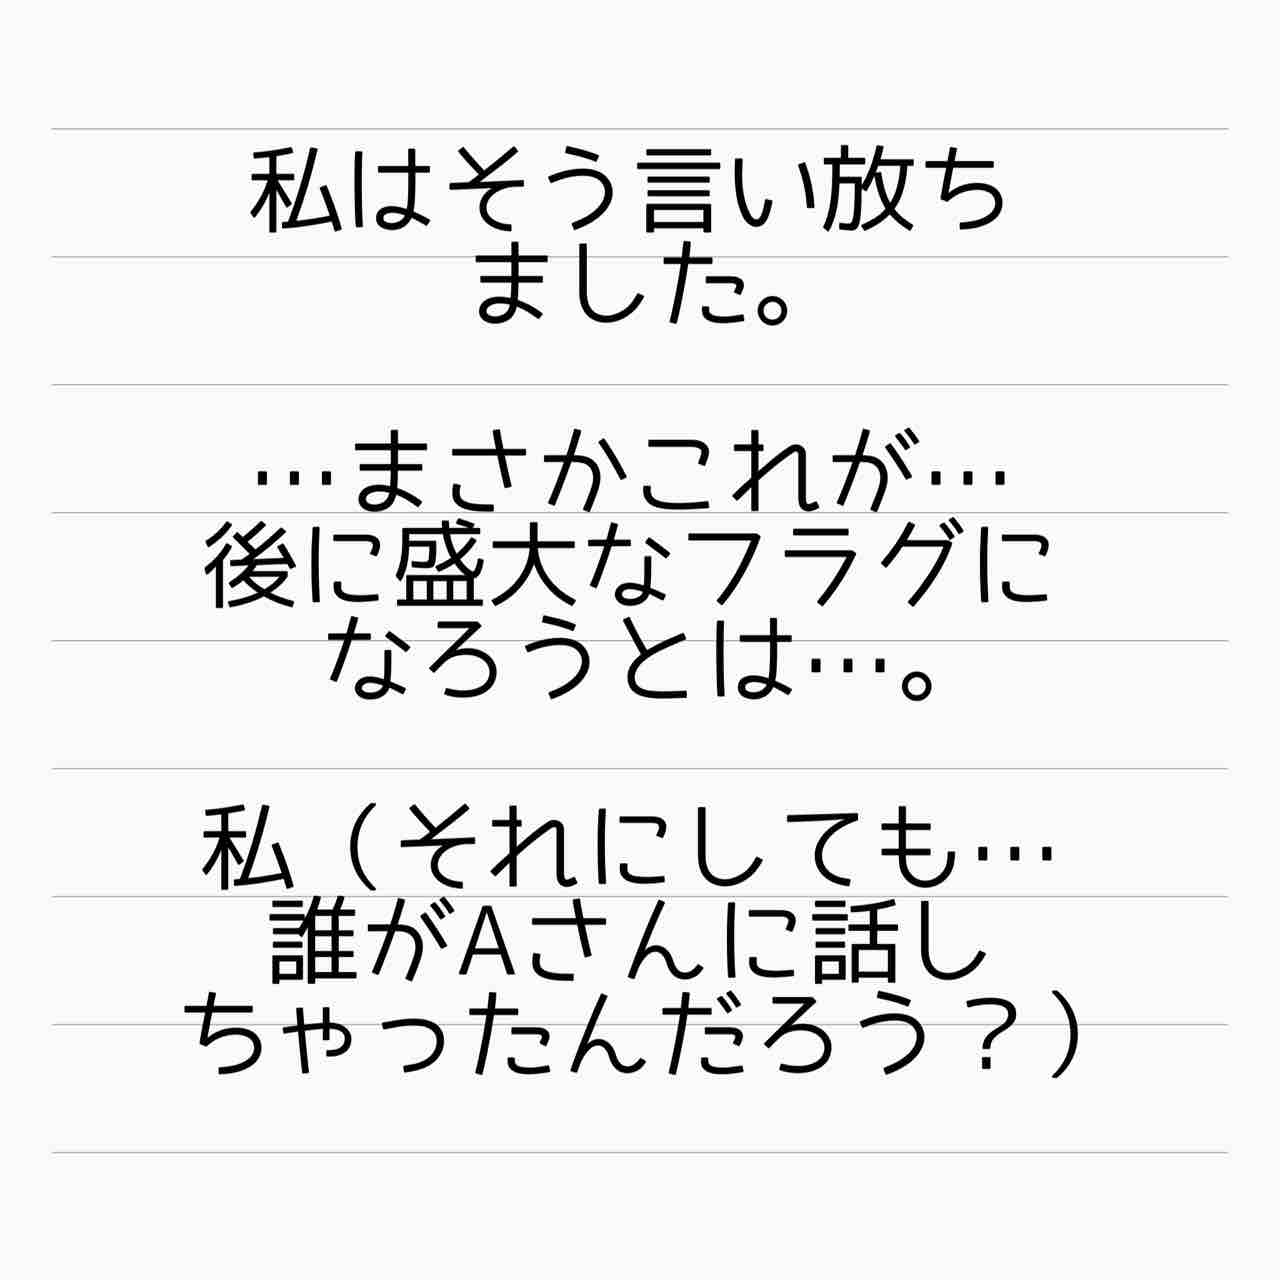 私はそう言い放ち
ました。
…まさかこれが…
後に盛大なフラグに
なろうとは…。
私（それにしても…
誰がAさんに話し
ちゃったんだろう？）